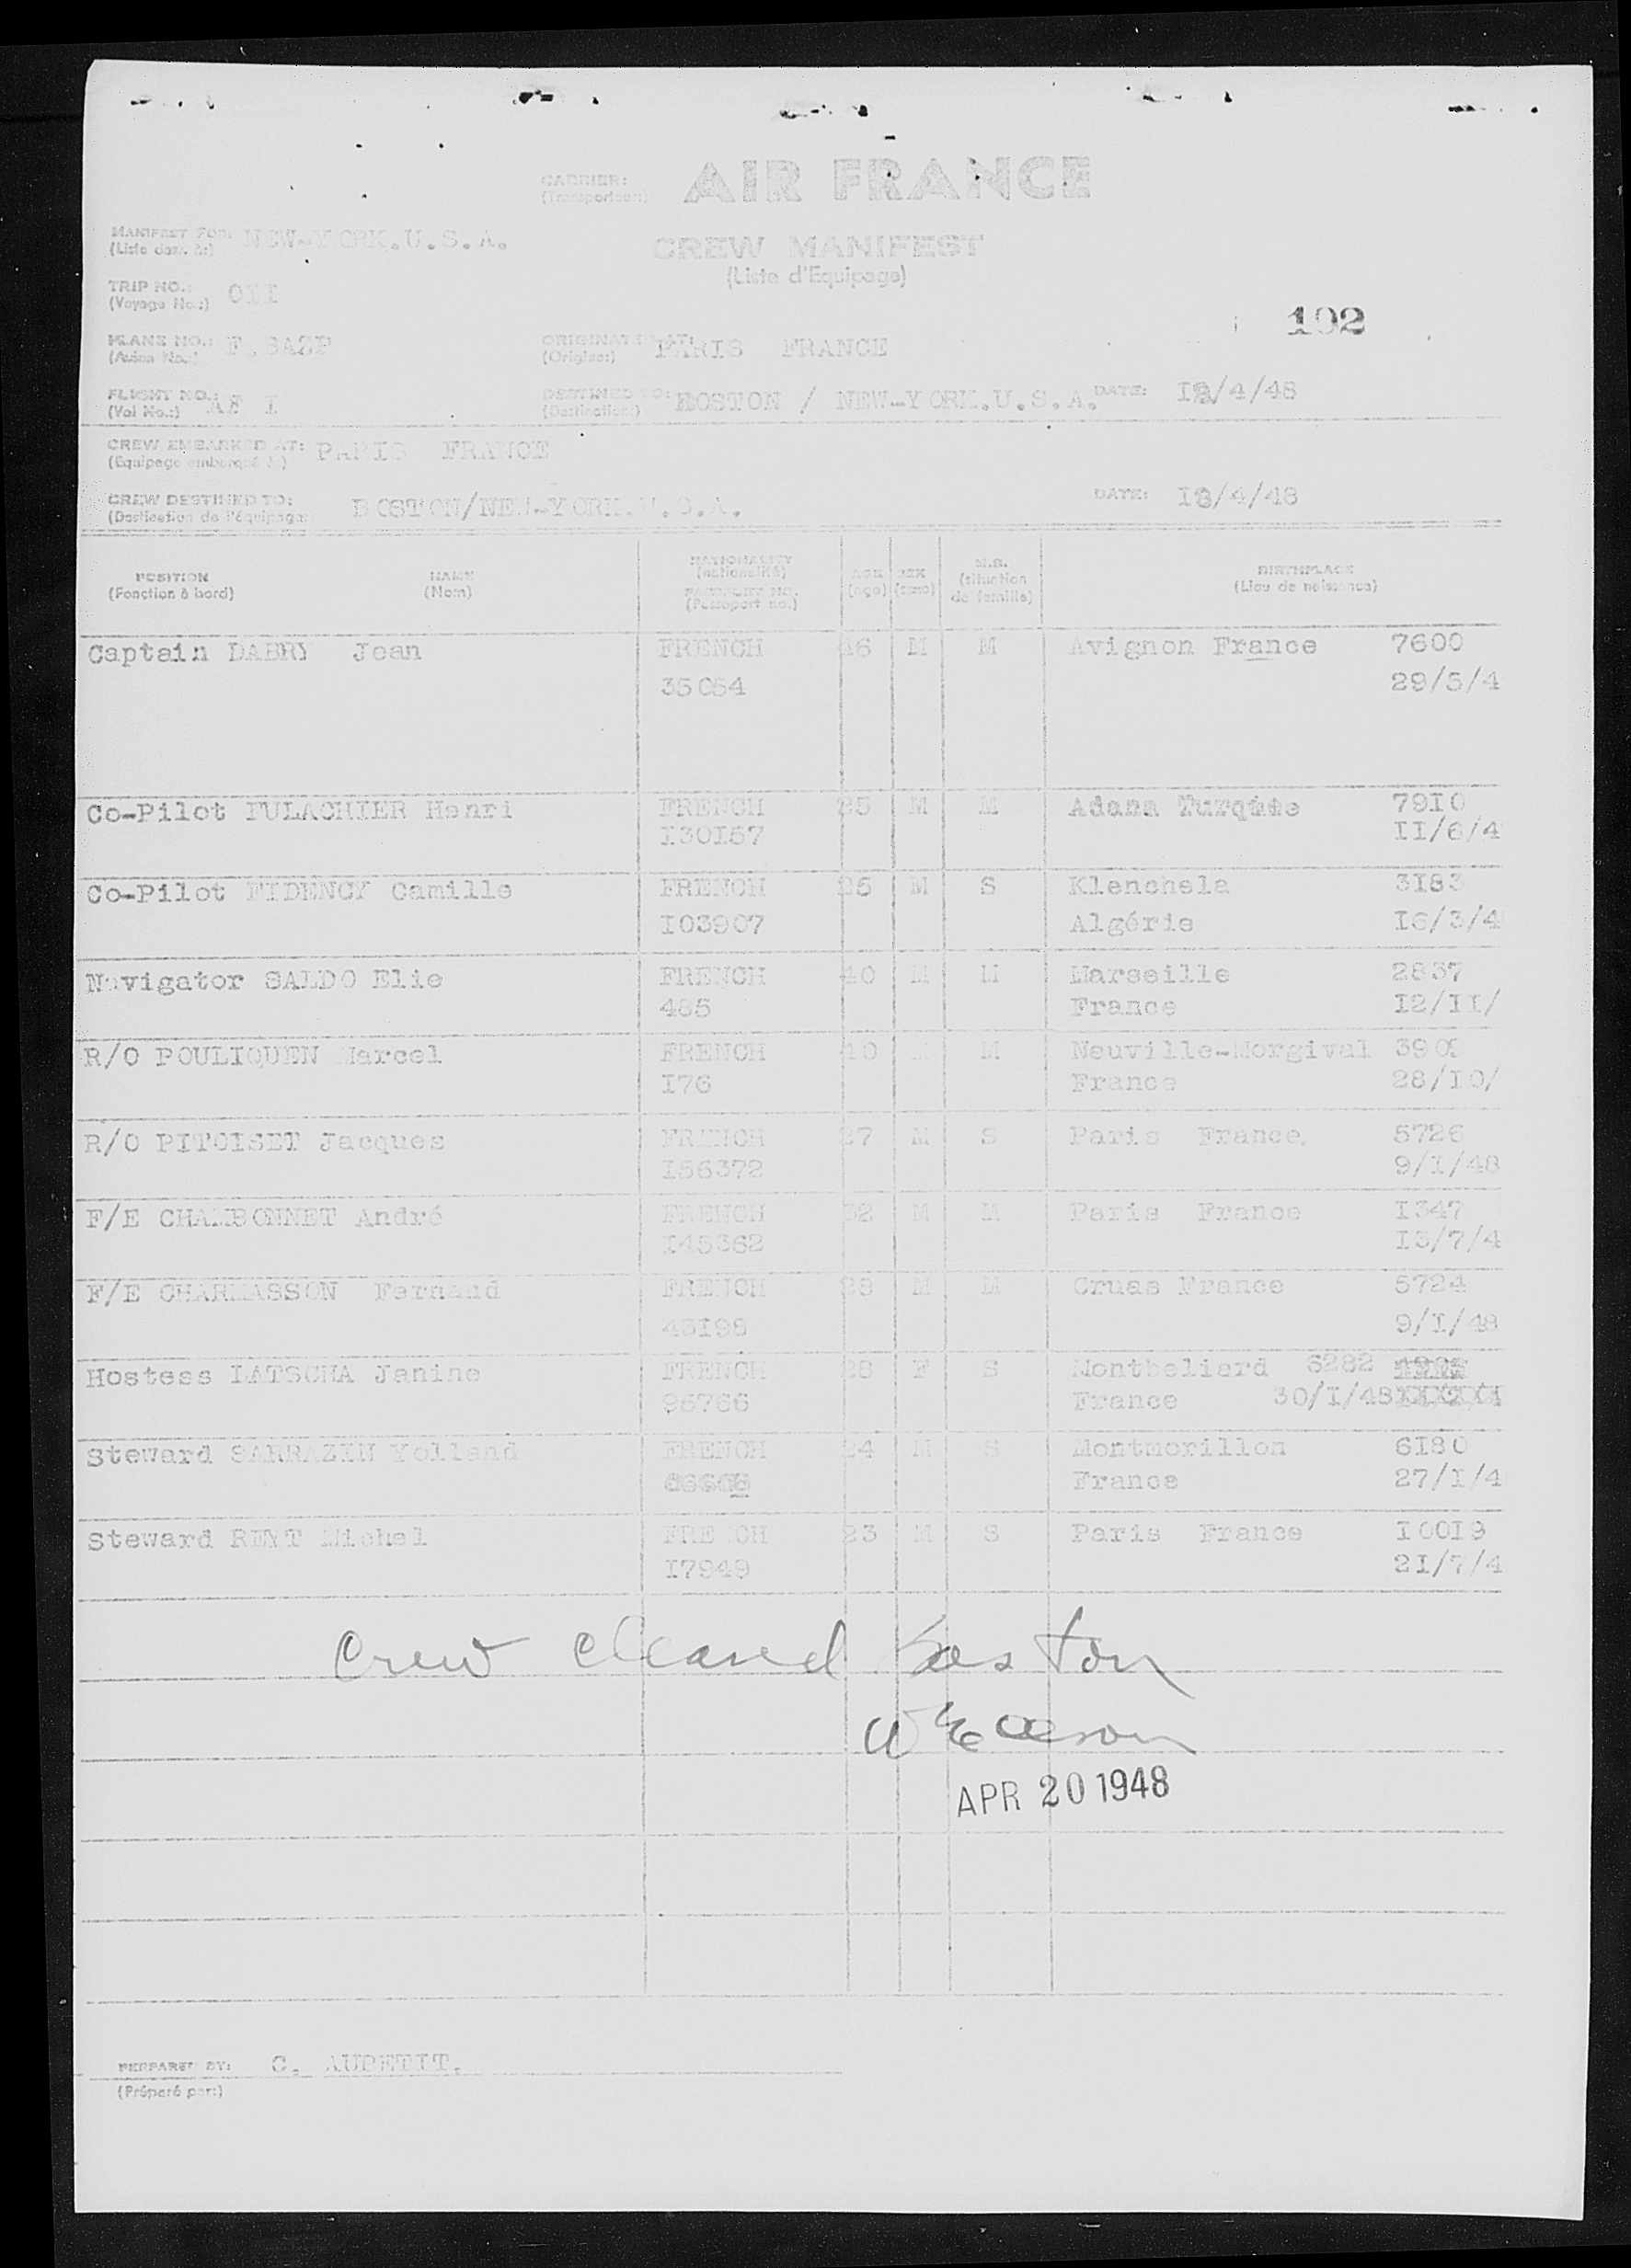 CARRIER: AIR FRANCE
(Transporteur)
MANIFEST FOR: NEW-YORK.U.S.A.
CREW MANIFEST
(Liste d'Equipage)
TRIP NO.: OII
(Voyage No.:)
192
PLANE NO.:
(Avion No.:)
ORIGINATED AT: PARIS FRANCE
(Origine:)
FLIGHT NO.: AF I
(Vol No.:)
DESTINED TO: BOSTON / NEW-YORK.U.S.A. DATE: /4/48
(Destination:)
CREW EMBARKED AT: PARIS FRANCE
(Equipage embarqué à:)
CREW DESTINED TO: BOSTON/NEW-YORK.U.S.A. DATE: /4/48
(Destination de l'équipage:
POSITION NAME NATIONALITY AGE SEX M.S. BIRTHPLACE
(Fonction à bord) (Nom) (nationalité) (age) (sexe) (situation de famille) (Lieu de naissance)
PASSPORT NO.
(Passeport no.)
Captain DABRY Jean FRENCH 46 M M Avignon France 7600
35054 29/5/4
Co-Pilot FULACHIER Henri FRENCH M M Adana 7910
I30I57 II/6/4
Co-Pilot FIDENCY Camille FRENCH M S Klenchela 3I83
I03907 Algérie I6/3/4
Navigator SALDO Elie FRENCH 40 M M Marseille 2837
485 France I2/II/
R/O POULIQUEN Marcel FRENCH 40 M M Neuville-Morgival
I76 France 28/I0/
R/O PITOISET Jacques FRENCH 27 M S Paris France 5726
I56372 9/I/48
F/E CHAMBONNET André FRENCH 32 M M Paris France I347
I45362 I3/7/4
F/E CHARMASSON Fernand FRENCH M M Cruas France 5724
43I98 9/I/48
Hostess LATSCHA Janine FRENCH 28 F S Montbeliard 6282
96766 France 30/I/48
Steward SARRAZIN Yolland FRENCH 24 M S Montmorillon 6I80
France 27/I/4
Steward REMY Michel FRENCH 23 M S Paris France I00I9
I7949 2I/7/4
Crew cleared Boston
APR 20 1948
PREPARED BY: C. AUPETIT.
(Préparé par:)